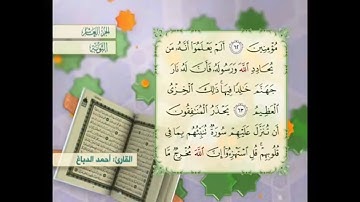 الجزء العاشر
التوبة
مُؤْمِنِينَ ٦٢ أَلَمْ يَعْلَمُوٓا۟ أَنَّهُۥ مَن
يُحَادِدِ ٱللَّهَ وَرَسُولَهُۥ فَأَنَّ لَهُۥ نَارَ
جَهَنَّمَ خَـٰلِدًا فِيهَا ۚ ذَٰلِكَ ٱلْخِزْىُ
ٱلْعَظِيمُ ٦٣ يَحْذَرُ ٱلْمُنَـٰفِقُونَ
أَن تُنَزَّلَ عَلَيْهِمْ سُورَةٌ تُنَبِّئُهُم بِمَا فِى
قُلُوبِهِمْ ۚ قُلِ ٱسْتَهْزِءُوٓا۟ إِنَّ ٱللَّهَ مُخْرِجٌ مَّا
القارئ: أحمد الدباغ